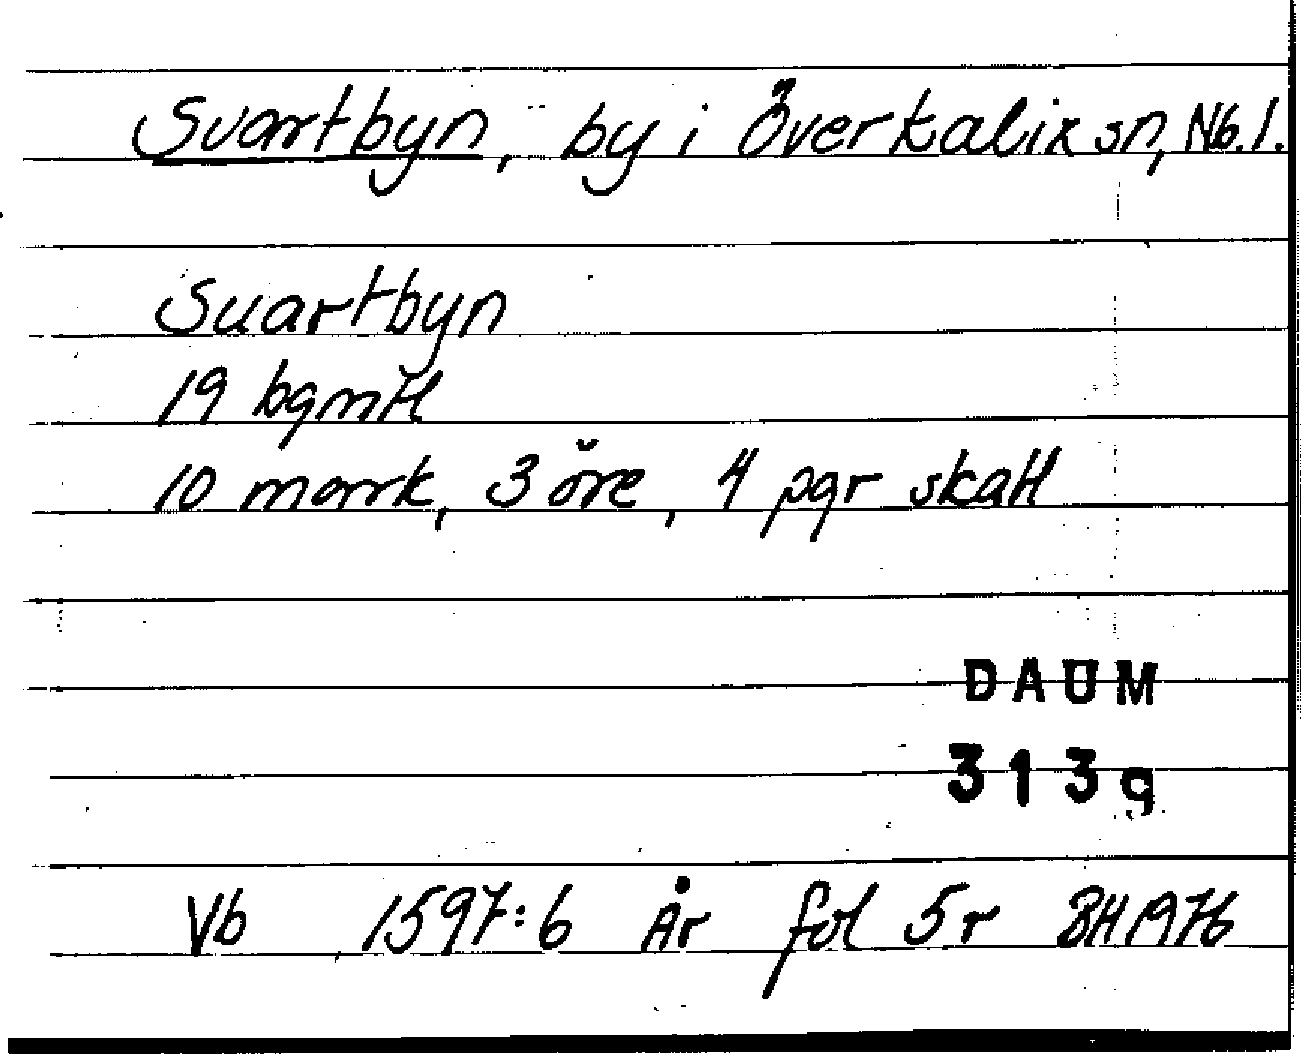 Svartbyn, by i Överkalix sn, Nb. l.
Suartbyn
19 bgmtl
10 mark, 3 öre, 4 pgr skatt
DAUM
313g
Vb 1597:6 År fol 5r BH 1976